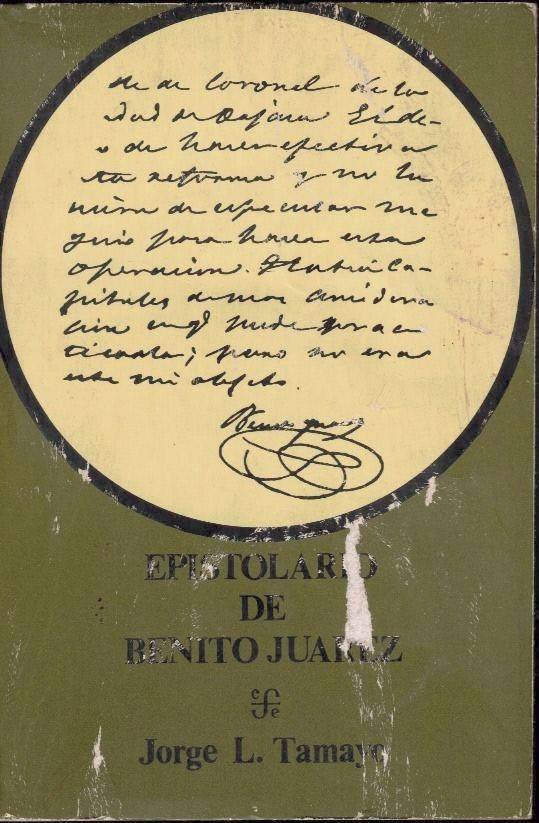 de de Coronel de la
dad de Oajaca El de-
o de hacer efectiva
ta reforma y no la
mira de especular me
guió para hacer esta
operacion. Habia ca-
pitales de mas considera
cion en qe pude
; pero no era
este mi objeto.
Benito Juarez
EPISTOLARIO
DE
BENITO JUAREZ
cfe
Jorge L. Tamayo